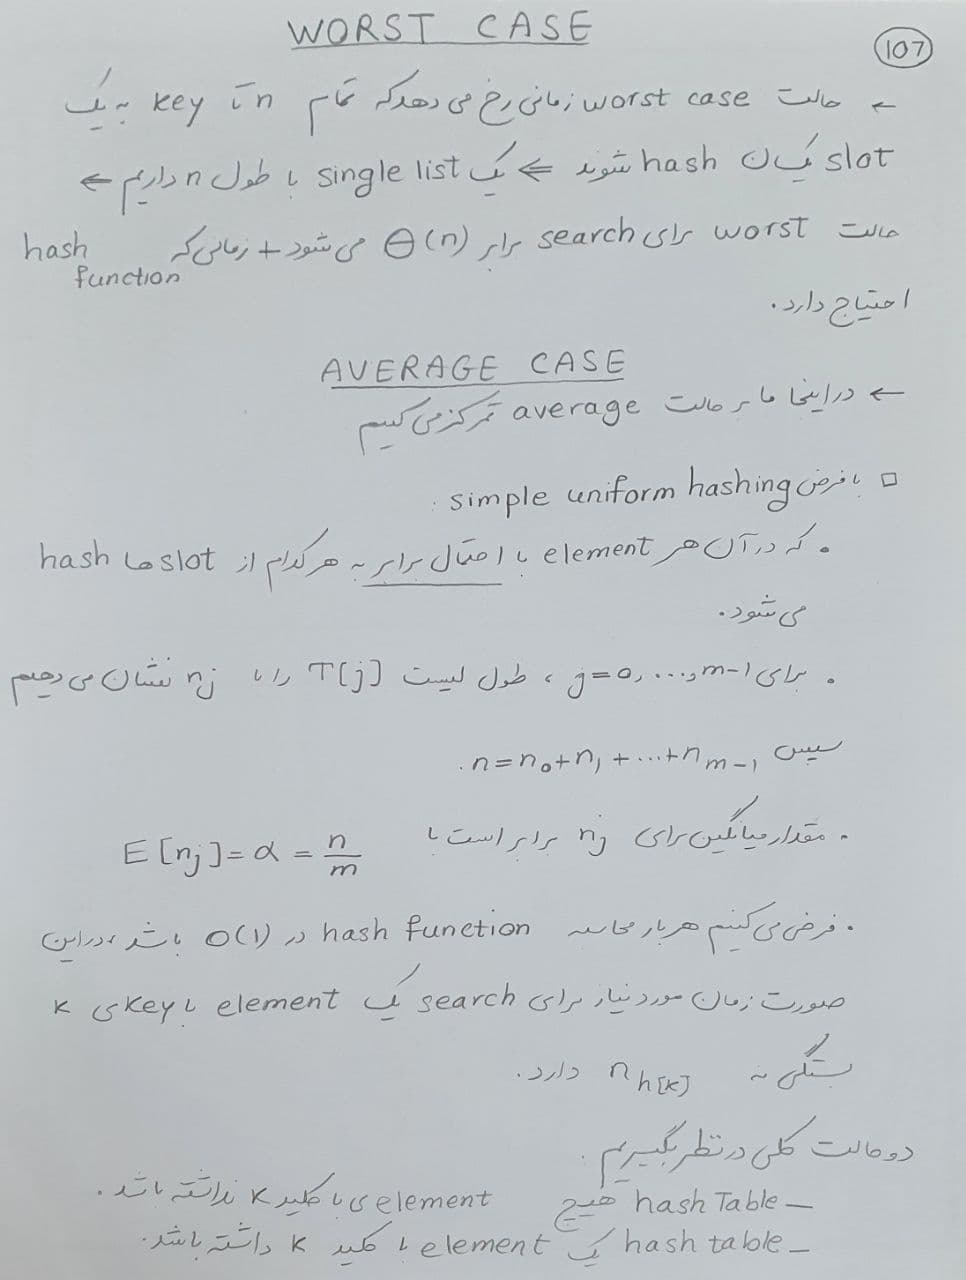 WORST CASE
107
← حالت worst case زمانی رخ می دهد که تمام n تا key به یک
slot یکسان hash شوند ⇐ یک single list با طول n داریم ←
حالت worst برای search برابر Θ(n) می شود + زمانی که hash function
احتیاج دارد.
AVERAGE CASE
← در اینجا ما بر حالت average تمرکز می کنیم
□ با فرض simple uniform hashing :
• که در آن هر element با احتمال برابر به هر کدام از slot ها hash
می شود.
• برای j=0, ..., m-1 ، طول لیست T[j] را با nj نشان می دهیم
سپس n=n₀+n₁+...+n m-1 .
• مقدار میانگین برای nj برابر است با E[nj]=α=n/m
• فرض می کنیم هر بار محاسبه hash function در O(1) باشد، در این
صورت زمان مورد نیاز برای search یک element با key ی k
بستگی به n h[k] دارد.
دو حالت کلی در نظر بگیریم.
– hash Table هیچ element ی با کلید k نداشته باشد.
– hash table یک element با کلید k داشته باشد.